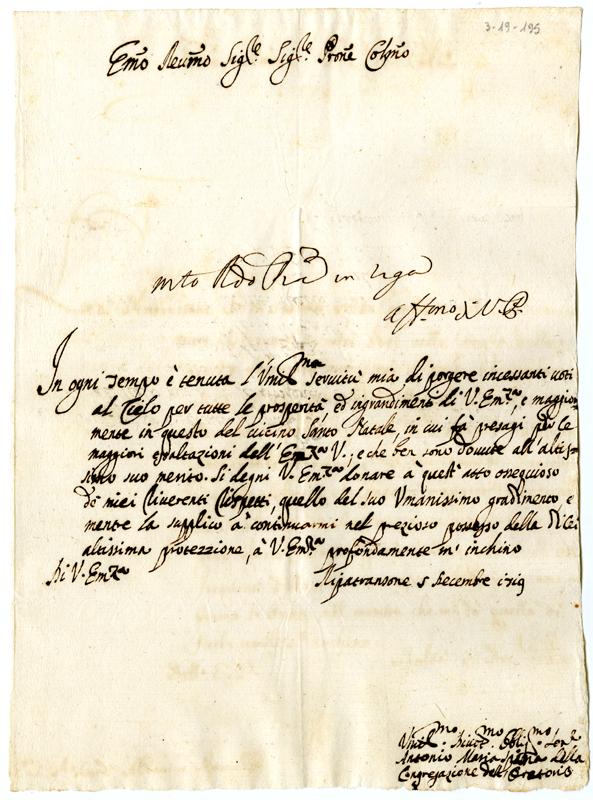 3-19-195
Em̃o Reum̃o Sig.re Sig.re Prone Col̃mo
in
aff.mo
In ogni tempo è tenuta l'Vmil.ma seruitù mia di porgere incessanti uoti
al Cielo per tutte le prosperità ed ingrandimenti di V. Em.za, e maggior-
mente in questo del uicino Santo Natale, in cui fà presagi per le
maggiori esaltazioni dell' Em.za V., e che ben sono douute all' altis-
simo suo merito. Si degni V. Em.za donare à quest' atto ossequioso
de miei riuerenti rispetti, quello del suo Vmanissimo gradimento e
mentre la supplico à continuarmi nel prezioso possesso della di lei
altissima protezzione, à V. Em.za profondamente m' inchino
Di V. Em.za
Ripatransone 5 Decembre 1719
Vmil.mo Diuot.mo Obli.mo Ser.e
Antonio Maria della
Congregazione dell' Oratorio